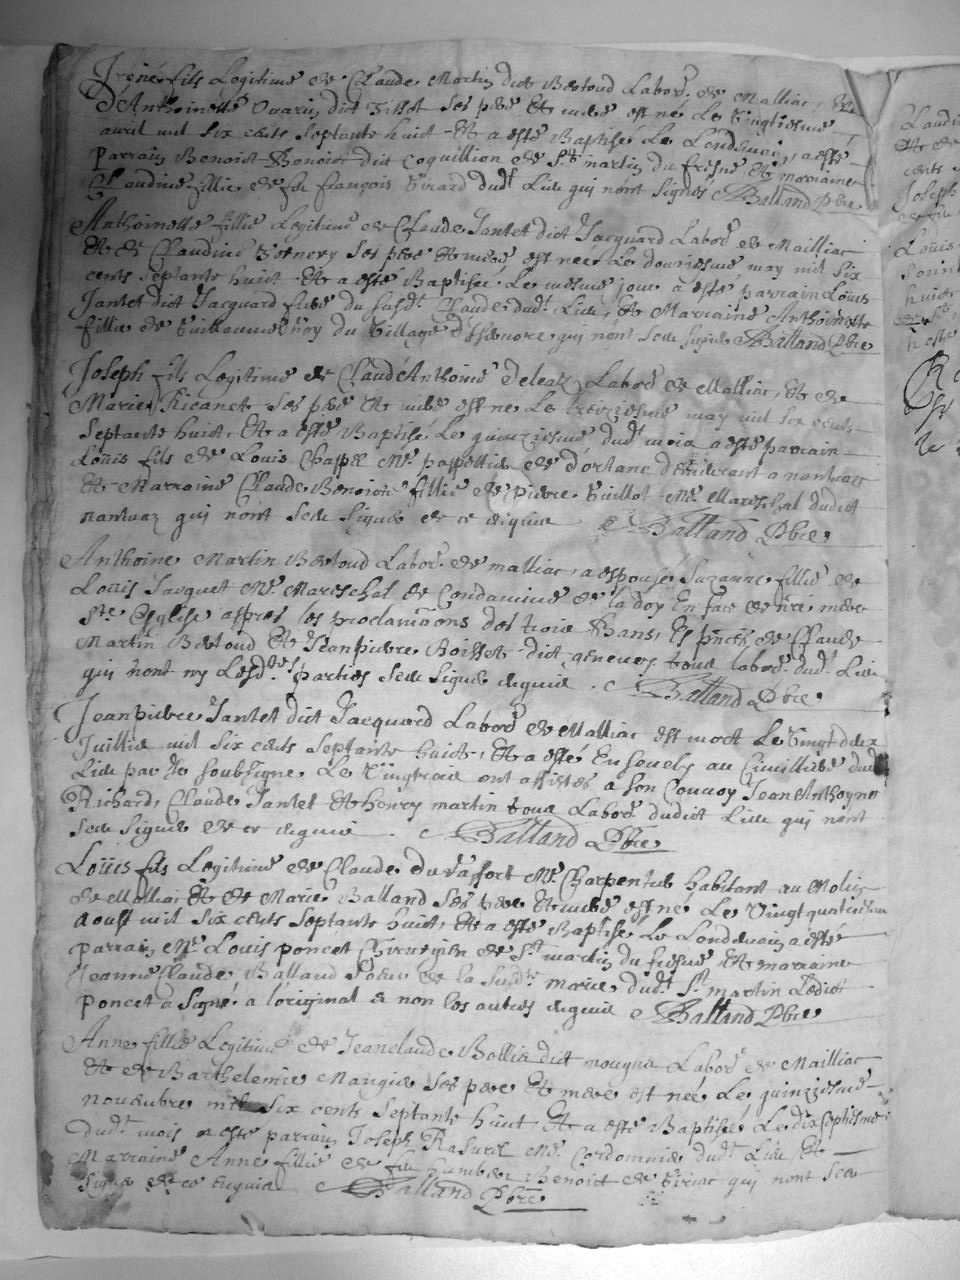 Irené fils Legitime de Claude Martin dit Bertoud Labor. de Malliac, Et
d'Anthoinette ses pere Et mere est né Le Vingtiesme
avril mil six cents septante huict Et a esté Baptisé Le Lendemain, a esté
parrain Benoist Benoist dit Coquillion de St martin du fresne Et marraine
Claudine fillie de feu françois Girard dudt Lieu qui nont signés Balland Pbre
Anthoinette fillie Legitime de Claude Jantet dict Jacquard Labor. de Mailliac
Et de Claudine ses pere Et mere est nee Le douziesme may mil six
cents septante huict Et a esté Baptisée Le mesme jour a esté parrain Louis
Jantet dict Jacquard frere du susdt Claude dudt Lieu, Et Marraine Anthoinette
fillie de Guillaume Roy du Village qui nont sceu signer Balland Pbre
Joseph fils Legitime de Claude Anthoine Deleaz Labor. de Malliac, Et de
Marie Ricanet ses pere Et mere est né Le treziesme may mil six cents
septante huict, Et a esté Baptisé Le quinziesme dudt mois a esté parrain
Louis fils de Louis Chappel Mre de d'ortanc demeurant a nantuaz
Et Marraine Claude Benoiste fillie de Pierre Guillot Mre Mareschal dudict
nantuaz qui nont sceu signer de ce enquis Balland Pbre
Anthoine Martin Bertoud Labor. de malliac, a espousé Suzanne fillie de
Louis Jacquet Mre Mareschal de Condamine de la doy En face de nre mere
Ste Eglise apres les proclamãons des trois bans, Es pñces de Claude
Martin Bertoud Et Jean pierre Boisset dict geneves tous labors. dudt Lieu
qui nont ny Lesdtes parties sceu signer enquis. Balland Pbre
Jean pierre Jantet dict Jacquard Labor. de Malliac est mort Le Vingt deux
Juillie mil six cents septante huict, Et a esté Ensevely au Cimilliere dudt
Lieu par Je soubsigne Le Vingtrois ont assistés a son convoy Jean Anthoyne
Richard, Claude Jantet Et henry martin tous Labors. dudict Lieu qui nont
sceu signer de ce enquis. Balland Pbre
Loüis fils Legitime de Claude du raffort Mre Charpentier habitant au Molin
de Malliac Et de Marie Balland ses pere Et mere est né Le Vingt quatriesme
Aoust mil six cents septante huict, Et a esté Baptisé Le Lendemain a esté
parrain Mre Louis poncet Chirurgien de St martin du fresne Et marraine
Jeanne Claude Balland soeur de la susdte marie dudt St martin Ledict
poncet a signé a l'original & non les autres enquis Balland Pbre
Anne fillie Legitime de Jeanclaude Bollie dict mougna Labor. de Mailliac
Et de Barthelemie Mangier ses pere Et mere est née Le quinziesme
novembre mil six cents septante huict, Et a esté Baptisée Le dix septiesme
dudt mois a esté parrain Joseph Rasurel Mre Cordonnier dudt Lieu Et
Marraine Anne fillie de feu humber Benoict de Siriac qui nont sceu
signer de ce enquis Balland Pbre